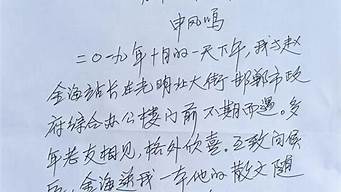 申风鸣
二〇一九年十月的一天下午，我与赵
金海站长在光明北大街邯郸市政
府综合办公楼门前不期而遇。多
年老友相见，格外欣喜，互致问候
后，金海送我一本他的散文随